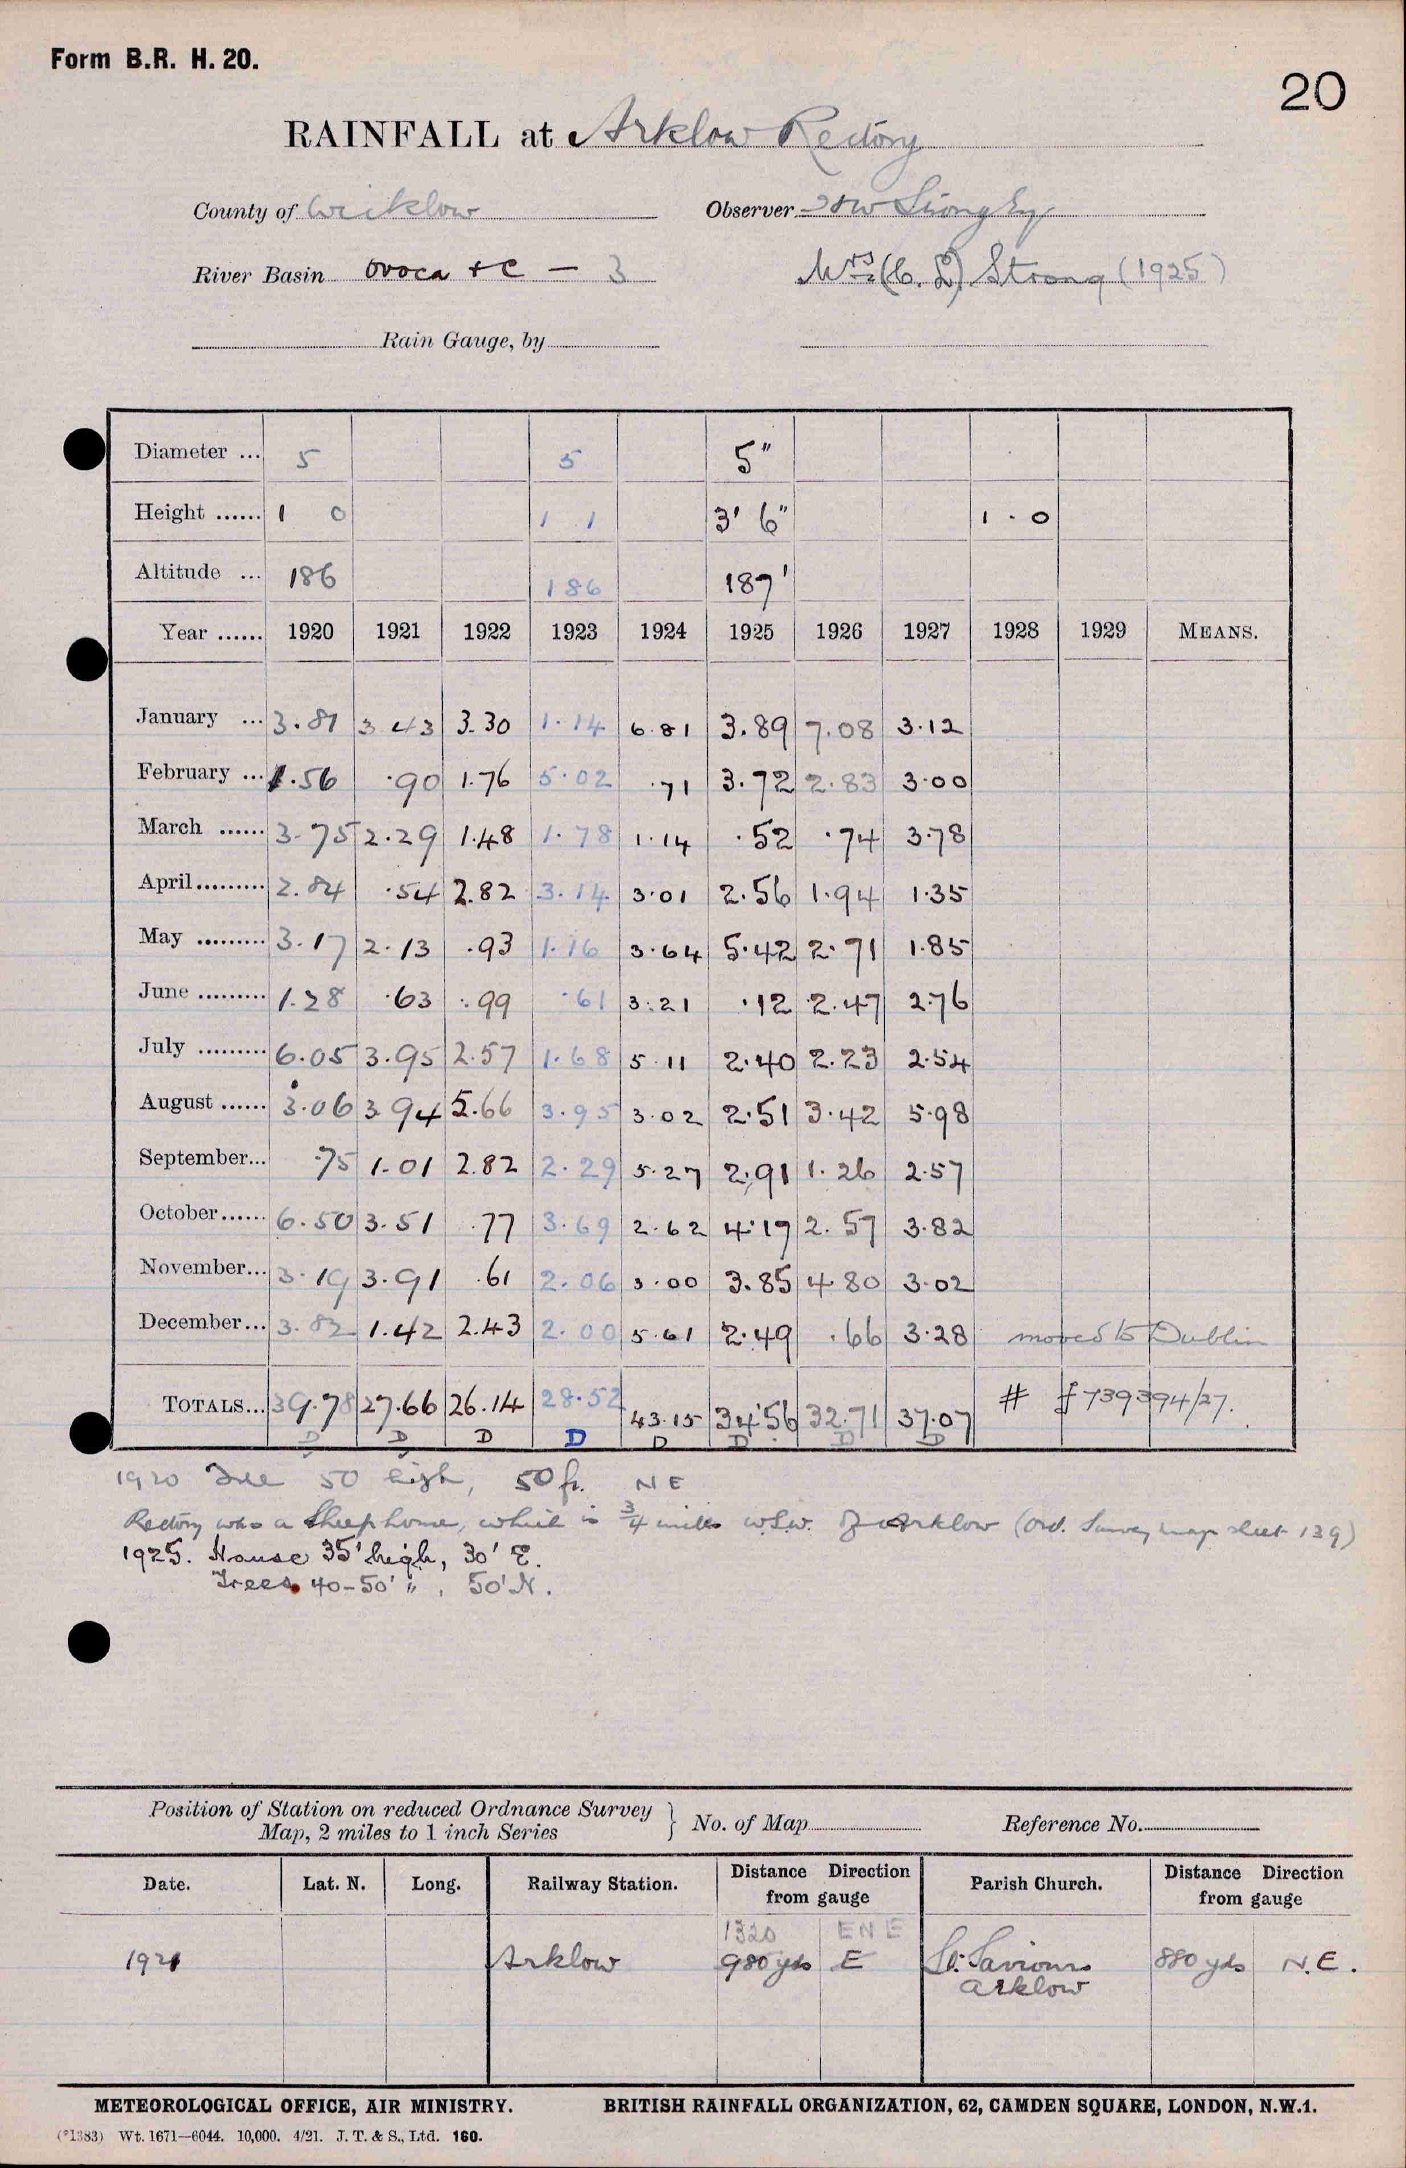 Form B.R. H. 20.
20
RAINFALL at Arklow Rectory
County of Wicklow Observer Strong Esq
River Basin Ovoca & C — 3 Mrs (C. L) Strong (1925)
Rain Gauge, by
Diameter ... 5 5 5"
Height ...... 1 0 1 1 3' 6" 1 . 0
Altitude ... 186 186 187'
Year ...... 1920 1921 1922 1923 1924 1925 1926 1927 1928 1929 MEANS.
January ... 3.81 3 43 3.30 1.14 6.81 3.89 7.08 3.12
February ... 1.56 .90 1.76 5.02 .71 3.72 2.83 3.00
March ...... 3.75 2.29 1.48 1.78 1.14 .52 .74 3.78
April ......... 2.84 .54 2.82 3.14 3.01 2.56 1.94 1.35
May ......... 3.17 2.13 .93 1.16 3.64 5.42 2.71 1.85
June ......... 1.28 .63 .99 .61 3.21 .12 2.47 2.76
July ......... 6.05 3.95 2.57 1.68 5 11 2.40 2.23 2.54
August ...... 3.06 3 94 5.66 3.95 3.02 2.51 3.42 5.98
September... .75 1.01 2.82 2.29 5.27 2.91 1.26 2.57
October...... 6.50 3.51 .77 3.69 2.62 4.19 2.57 3.82
November... 3.19 3.91 .61 2.06 3.00 3.85 4.80 3.02
December... 3.82 1.42 2.43 2.00 5.61 2.49 .66 3.28 moved to Dublin
TOTALS... 39.78 27.66 26.14 28.52 43.15 34.56 32.71 37.07 # f 739394/27.
D D D D D D D D
1920 Tree 50 high, 50 ft. N E
Rectory was a Sheephouse, which is 3/4 miles W.S.W. of Arklow (Ord. Survey map sheet 139)
1925. House 35' high, 30' E.
Trees 40-50' " , 50' N.
Position of Station on reduced Ordnance Survey
Map, 2 miles to 1 inch Series } No. of Map Reference No.
Date. Lat. N. Long. Railway Station. Distance Direction from gauge Parish Church. Distance Direction from gauge
1320 ENE
1921 Arklow 980 yds E St. Saviours 880 yds N.E.
Arklow
METEOROLOGICAL OFFICE, AIR MINISTRY. BRITISH RAINFALL ORGANIZATION, 62, CAMDEN SQUARE, LONDON, N.W.1.
(*1383) Wt. 1671—6044. 10,000. 4/21. J. T. & S., Ltd. 160.